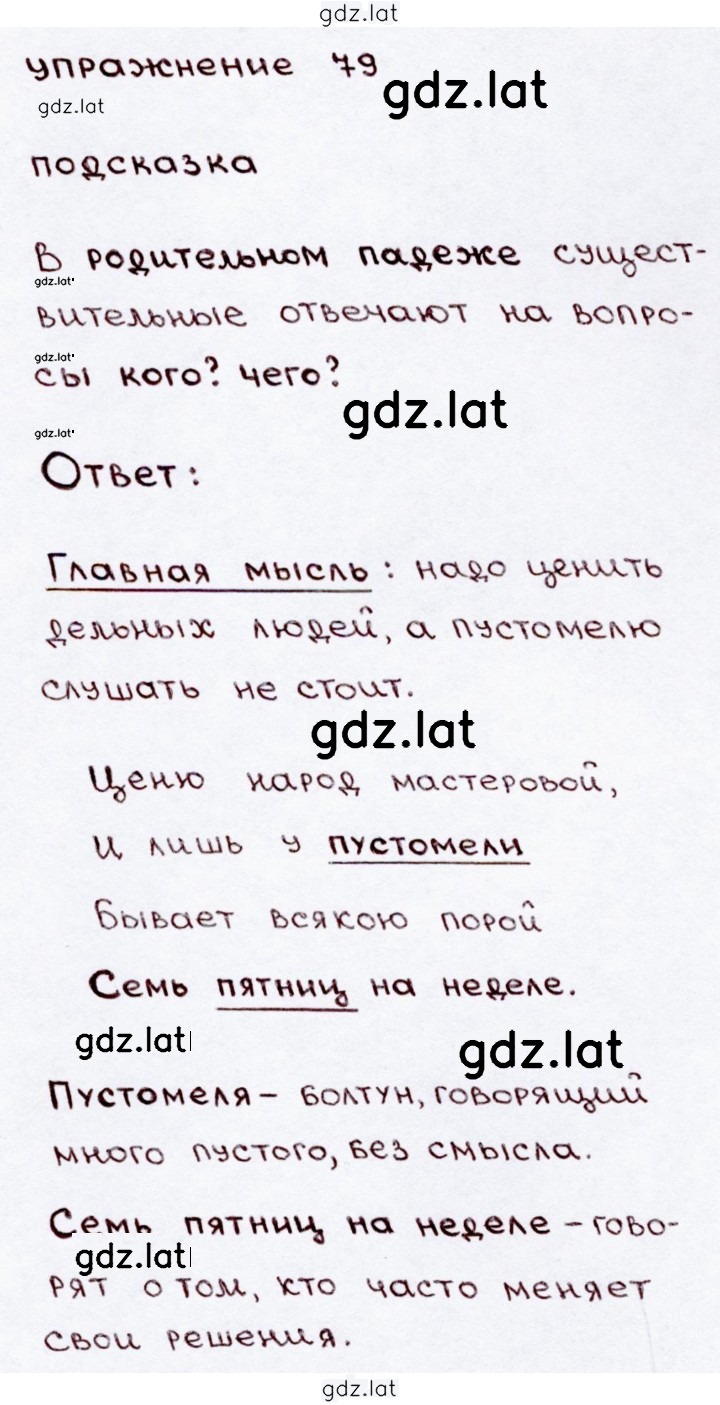 gdz.lat
упражнение 79
gdz.lat
gdz.lat
подсказка
В родительном падеже сущест-
gdz.lat
вительные отвечают на вопро-
gdz.lat
сы кого? чего?
gdz.lat
gdz.lat
Ответ:
Главная мысль: надо ценить
дельных людей, а пустомелю
слушать не стоит.
gdz.lat
Ценю народ мастеровой,
И лишь у пустомели
Бывает всякою порой
Семь пятниц на неделе.
gdz.lat
gdz.lat
Пустомеля - болтун, говорящий
много пустого, без смысла.
Семь пятниц на неделе - гово-
gdz.lat
рят о том, кто часто меняет
свои решения.
gdz.lat